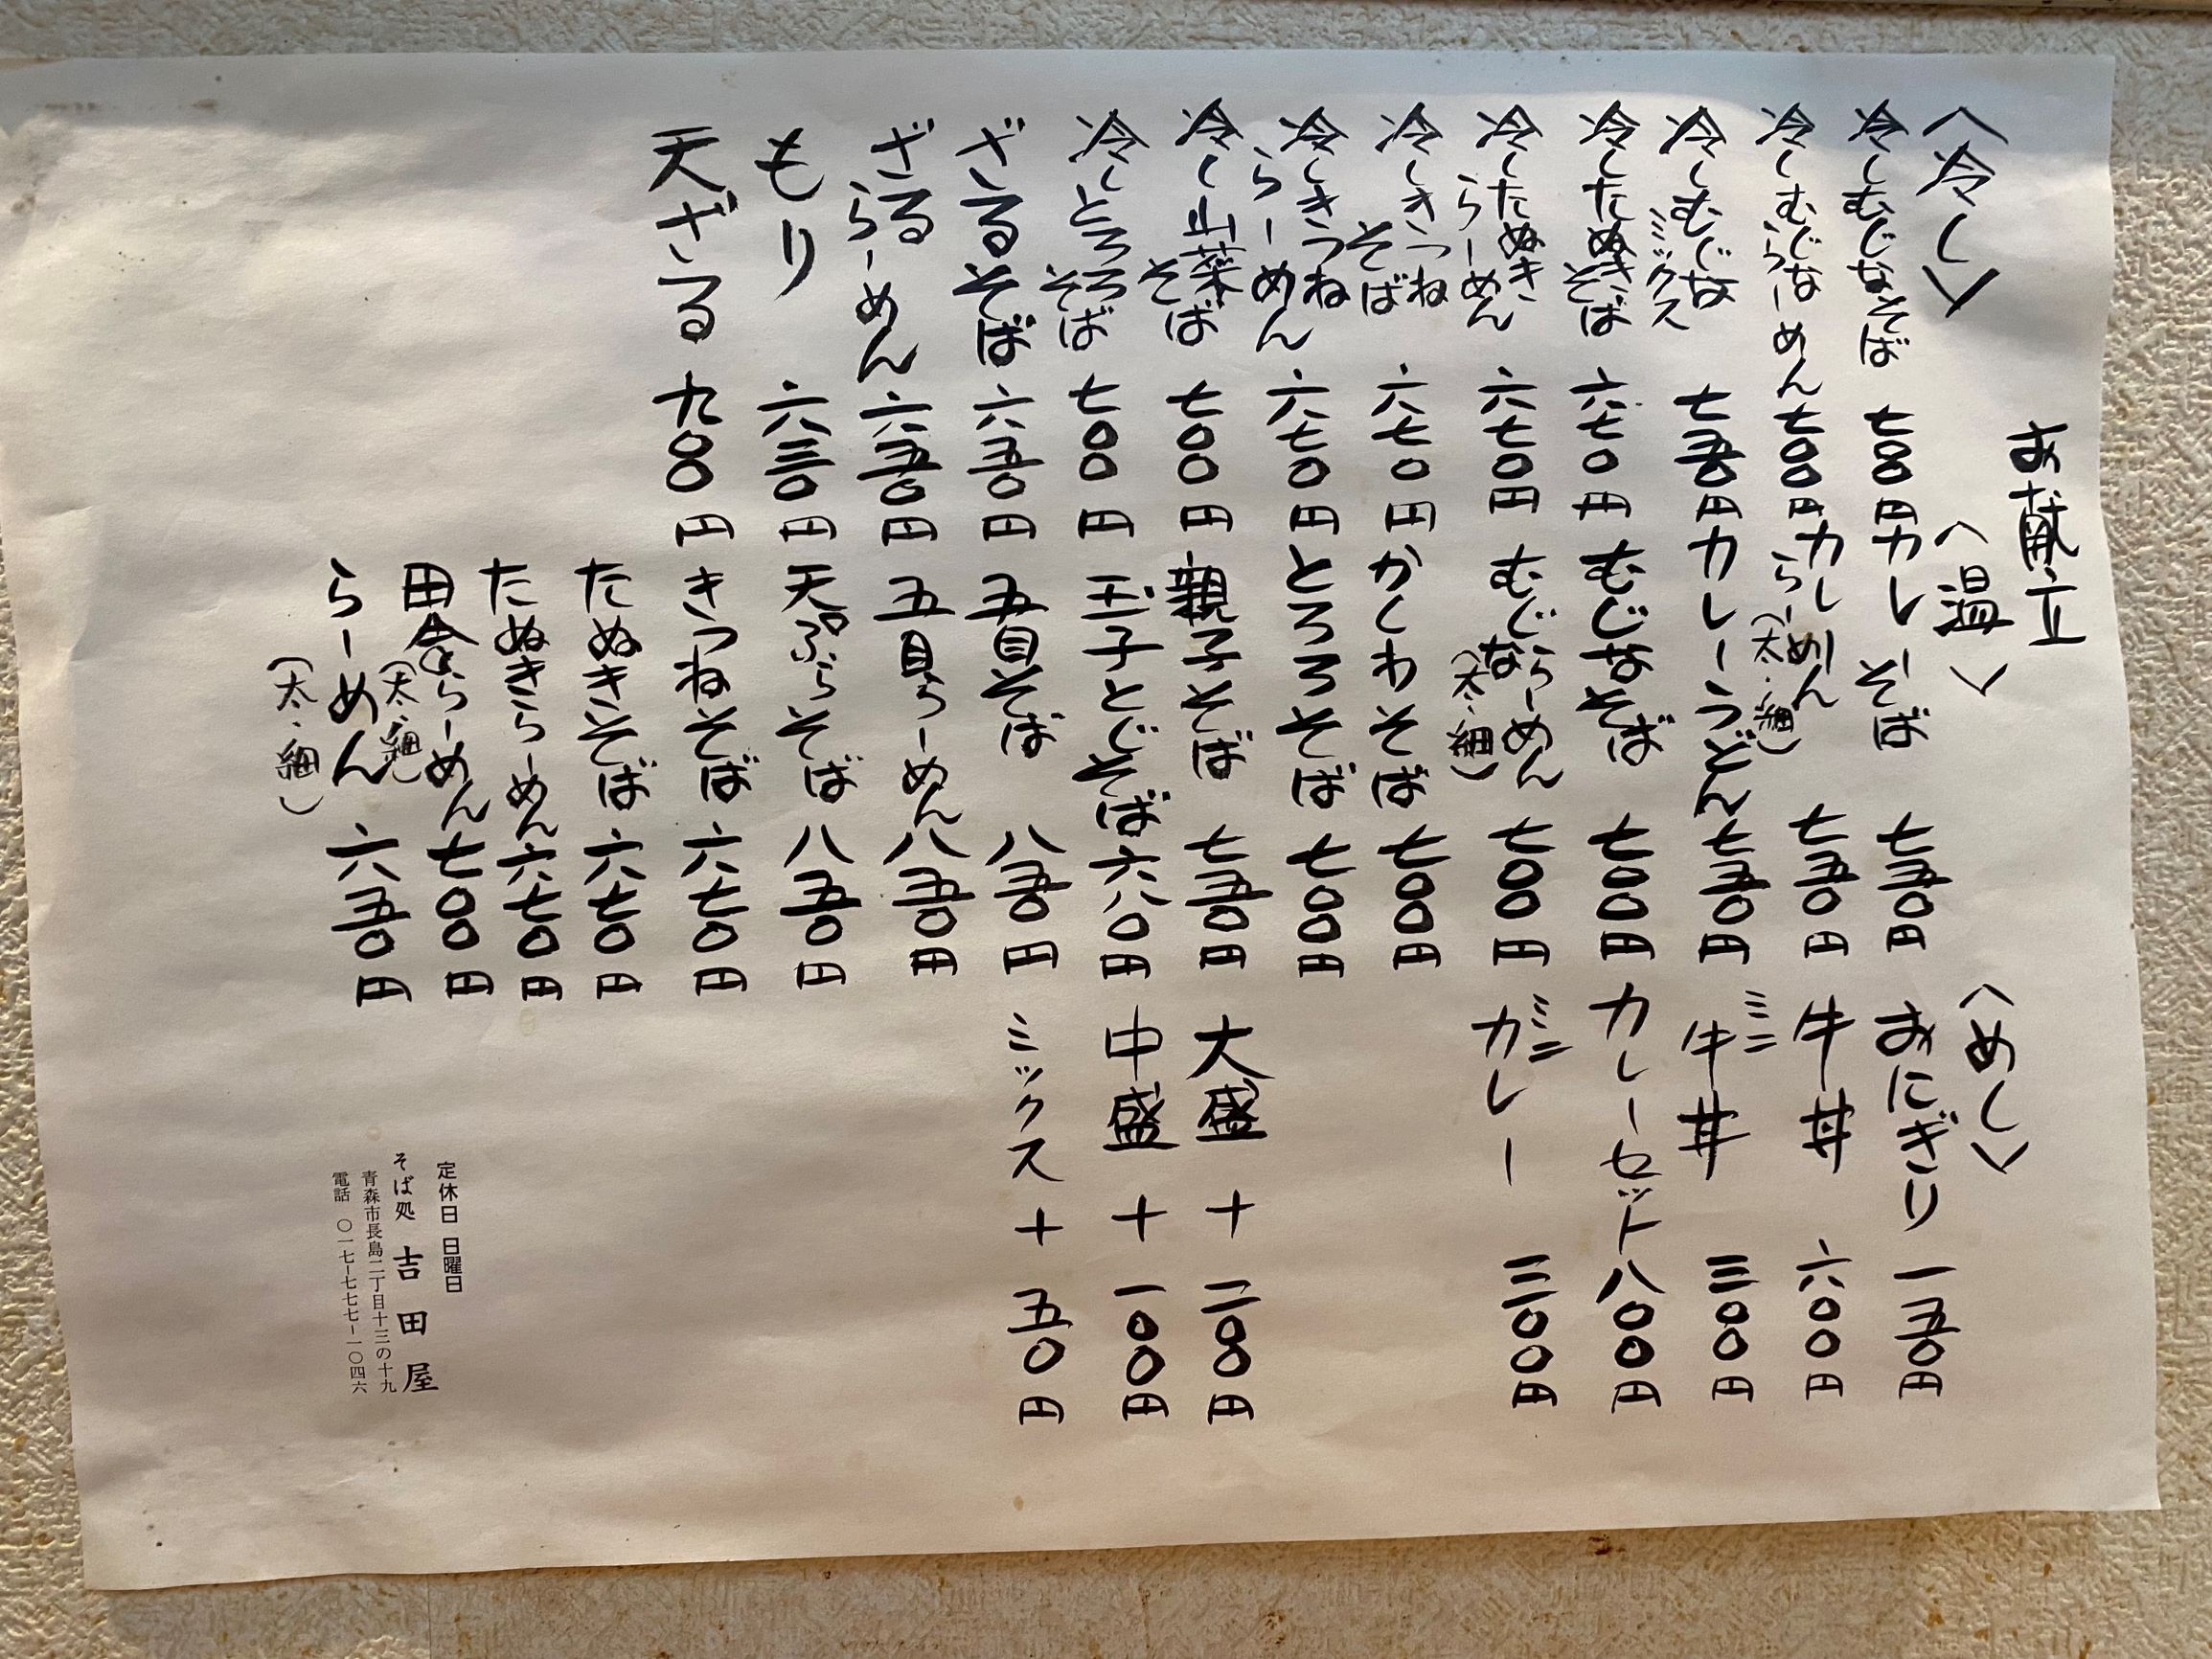 お献立
〈冷し〉
冷しむじなそば 七〇〇円
冷しむじならーめん 七〇〇円
冷しむじなミックス 七五〇円
冷したぬきそば 六七〇円
冷したぬきらーめん 六七〇円
冷しきつねそば 六七〇円
冷しきつねらーめん 六七〇円
冷し山菜そば 七〇〇円
冷しとろろそば 七〇〇円
ざるそば 六五〇円
ざるらーめん 六五〇円
もり 六三〇円
天ざる 九〇〇円
〈温〉
カレーそば 七五〇円
カレーらーめん(太・細) 七五〇円
カレーうどん 七五〇円
むじなそば 七〇〇円
むじならーめん(太・細) 七〇〇円
かしわそば 七〇〇円
とろろそば 七〇〇円
親子そば 七五〇円
玉子とじそば 六八〇円
五目そば 八五〇円
五目らーめん 八五〇円
天ぷらそば 八五〇円
きつねそば 六七〇円
たぬきそば 六七〇円
たぬきらーめん 六七〇円
田舎らーめん(太・細) 七〇〇円
らーめん(太・細) 六五〇円
〈めし〉
おにぎり 一五〇円
牛丼 六〇〇円
ミニ牛丼 三〇〇円
カレーセット 八〇〇円
ミニカレー 三〇〇円
大盛 + 二〇〇円
中盛 + 一〇〇円
ミックス + 五〇円
定休日 日曜日
そば処 吉田屋
青森市長島二丁目十三の十九
電話 〇一七-七七七-一〇四六